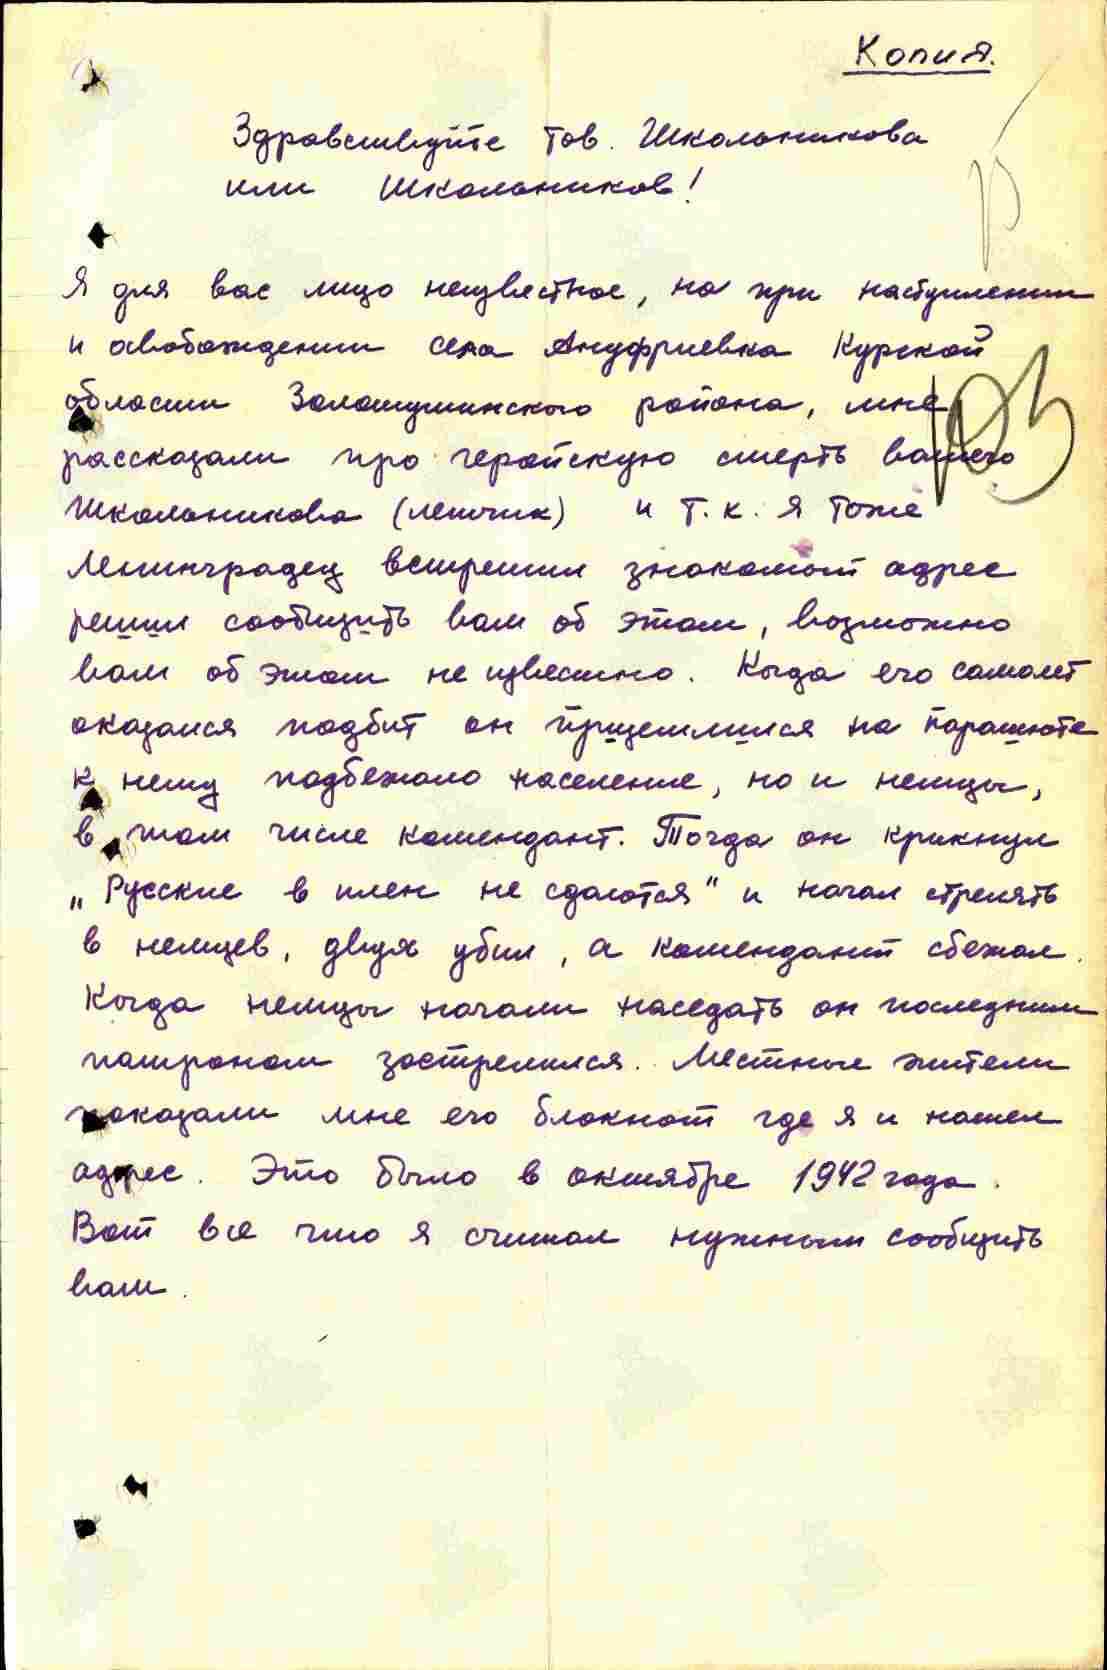 Копия.
Здравствуйте тов. Школьникова
или Школьников!
Я для вас лицо неизвестное, но при наступлении
и освобождении села Ануфриевка Курской
области Золотушинского района, мне
рассказали про геройскую смерть вашего
Школьникова (летчик) и т.к. я тоже
Ленинградец встретил знакомый адрес
решил сообщить вам об этом, возможно
вам об этом не известно. Когда его самолет
оказался подбит он приземлился на парашюте
к нему подбежало население, но и немцы,
в том числе комендант. Тогда он крикнул
„Русские в плен не сдаются" и начал стрелять
в немцев, двух убил, а комендант сбежал.
Когда немцы начали наседать он последним
патроном застрелился. Местные жители
показали мне его блокнот где я и нашел
адрес. Это было в октябре 1942 года.
Вот все что я считал нужным сообщить
вам.